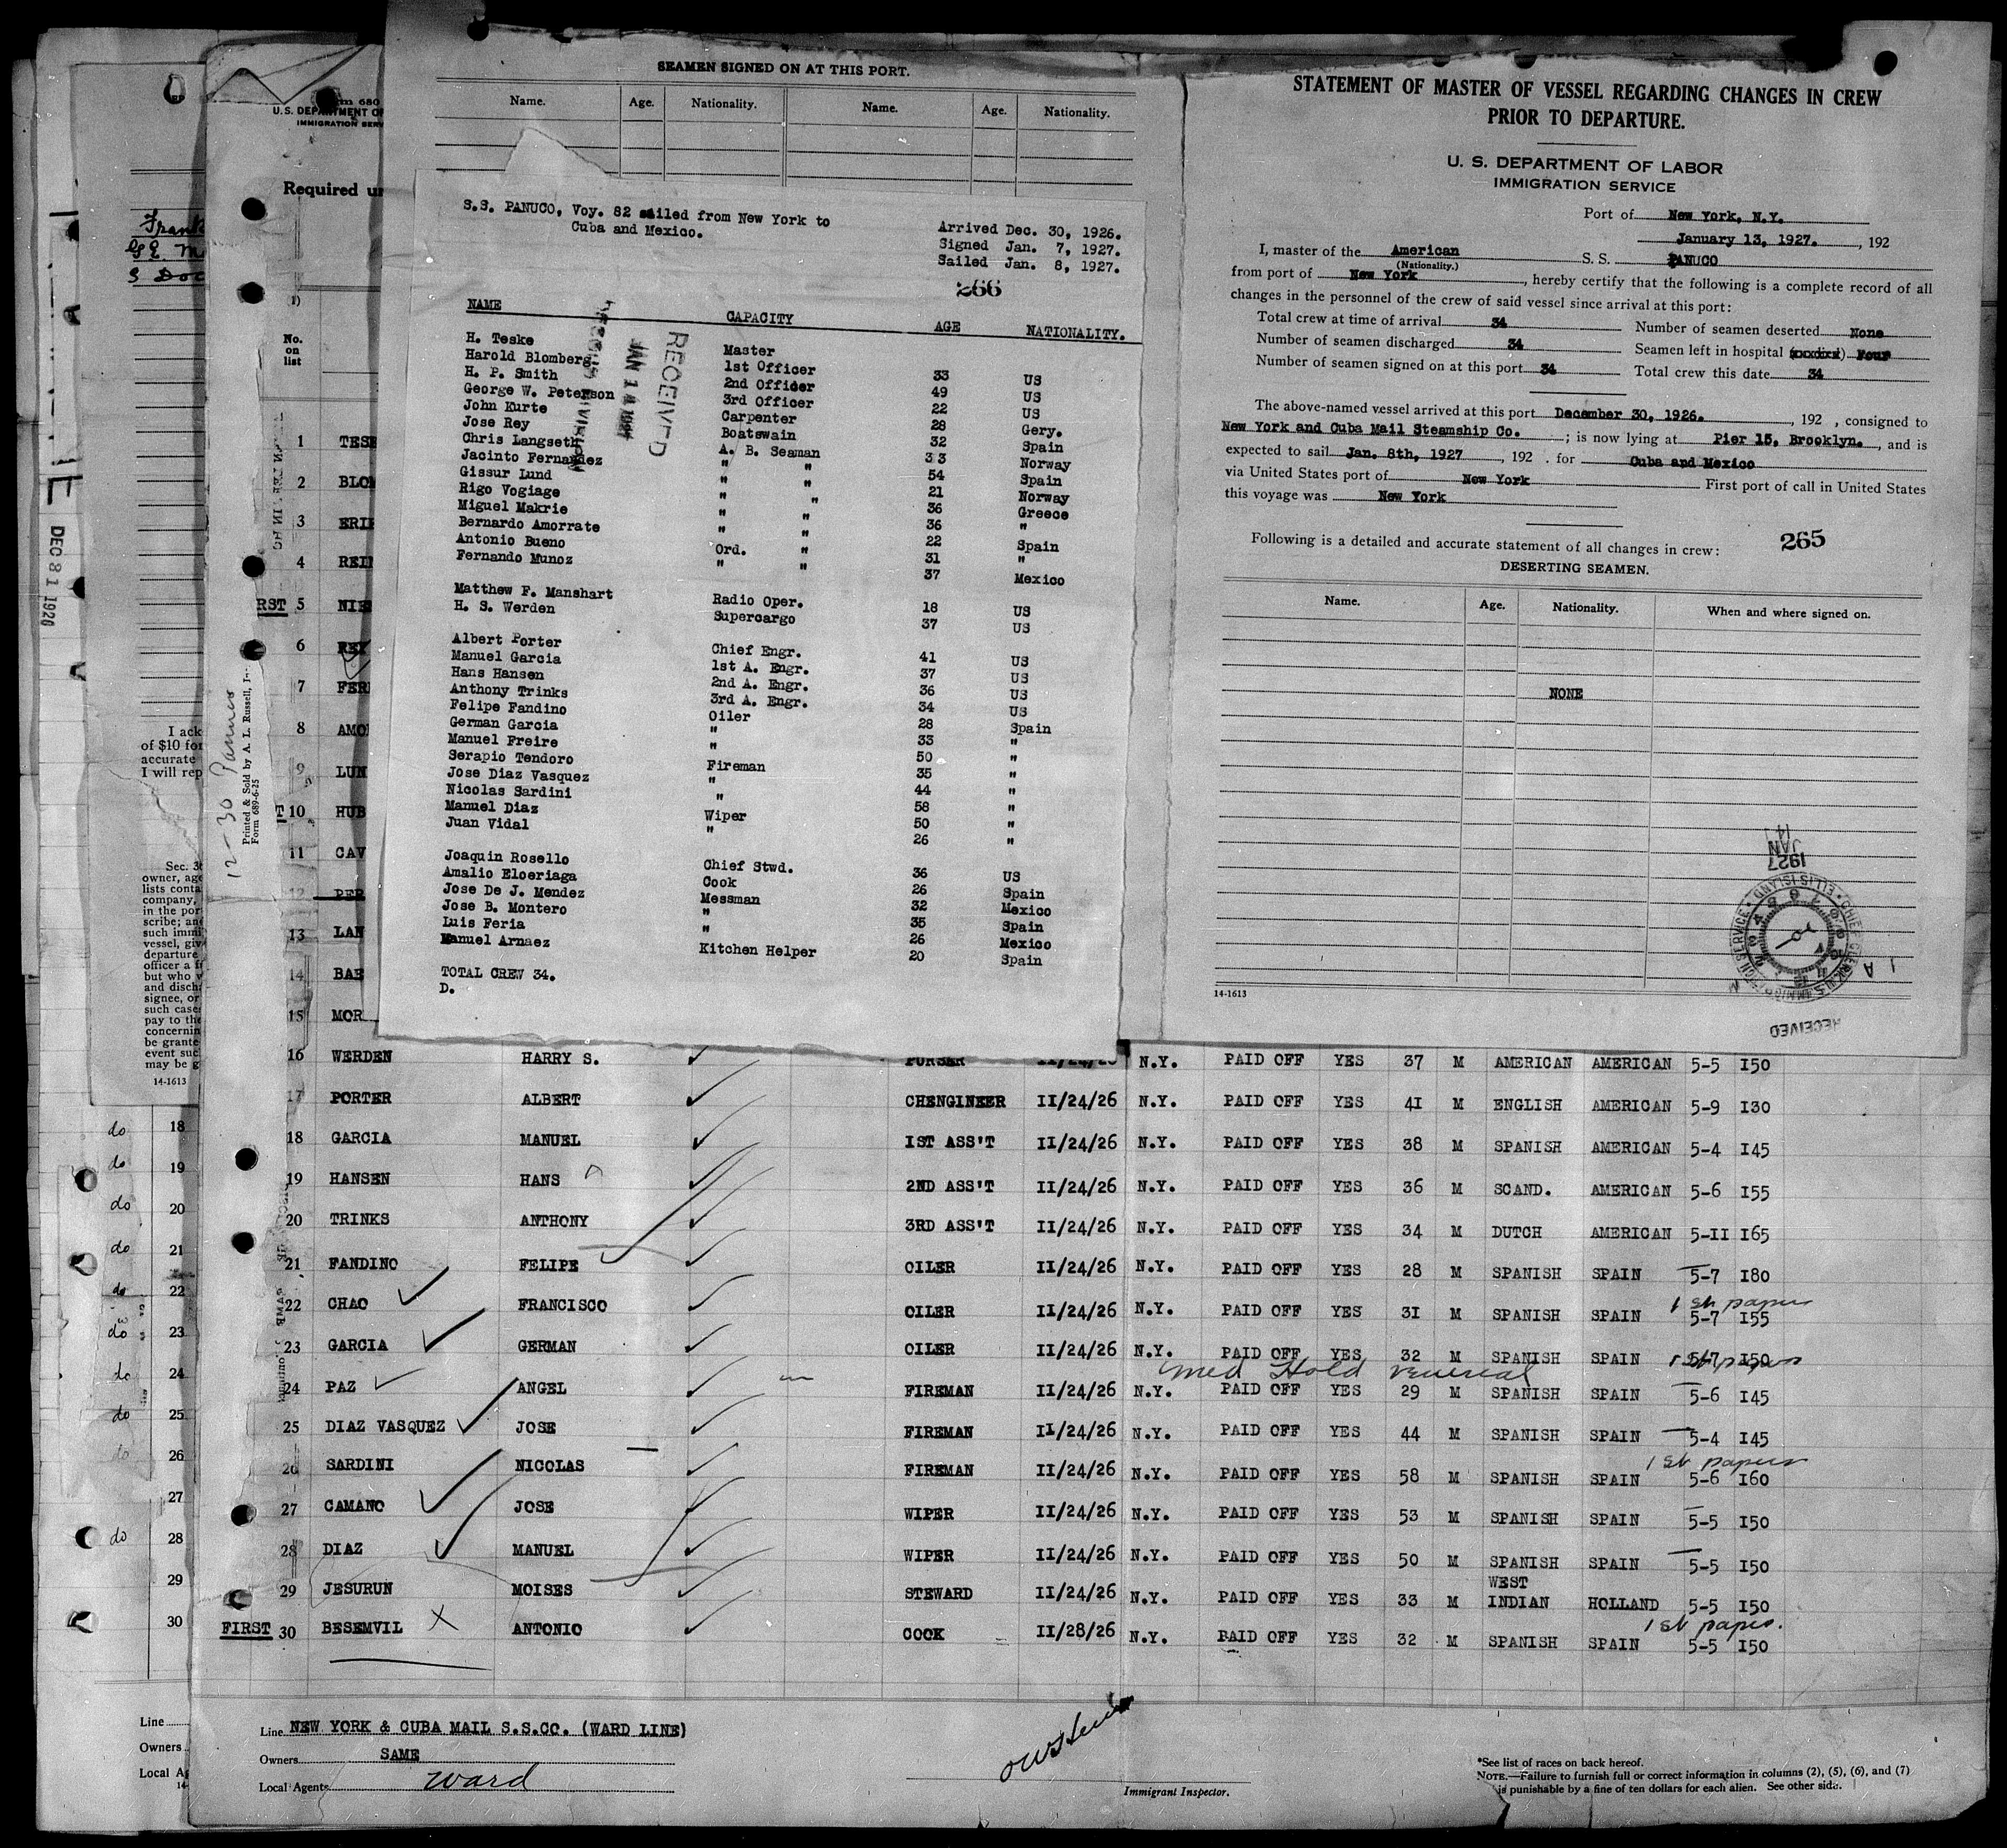 SEAMEN SIGNED ON AT THIS PORT.
Name. Age. Nationality. Name. Age. Nationality.
S.S. PANUCO, Voy. 82 sailed from New York to
Cuba and Mexico.
Arrived Dec. 30, 1926.
Signed Jan. 7, 1927.
Sailed Jan. 8, 1927.
266
RECEIVED
JAN 14 1927
NAME CAPACITY AGE NATIONALITY.
H. Teske Master
Harold Blomberg 1st Officer 33 US
H. P. Smith 2nd Officer 49 US
George W. Peterson 3rd Officer 22 US
John Kurte Carpenter 28 Gery.
Jose Rey Boatswain 32 Spain
Chris Langseth A. B. Seaman 33 Norway
Jacinto Fernandez " " 54 Spain
Gissur Lund " " 21 Norway
Rigo Vogiage " " 36 Greece
Miguel Makrie " " 36 "
Bernardo Amorrate " " 22 Spain
Antonio Bueno Ord. " 31 "
Fernando Munoz " " 37 Mexico
Matthew F. Manshart Radio Oper. 18 US
H. S. Werden Supercargo 37 US
Albert Porter Chief Engr. 41 US
Manuel Garcia 1st A. Engr. 37 US
Hans Hansen 2nd A. Engr. 36 US
Anthony Trinks 3rd A. Engr. 34 US
Felipe Fandino Oiler 28 Spain
German Garcia " 33 "
Manuel Freire " 50 "
Serapio Tendoro Fireman 35 "
Jose Diaz Vasquez " 44 "
Nicolas Sardini " 58 "
Manuel Diaz Wiper 50 "
Juan Vidal " 26 "
Joaquin Rosello Chief Stwd. 36 US
Amalio Eloeriaga Cook 26 Spain
Jose De J. Mendez Messman 32 Mexico
Jose B. Montero " 35 Spain
Luis Feria " 26 Mexico
Manuel Arnaez Kitchen Helper 20 Spain
TOTAL CREW 34.
D.
STATEMENT OF MASTER OF VESSEL REGARDING CHANGES IN CREW
PRIOR TO DEPARTURE.
U. S. DEPARTMENT OF LABOR
IMMIGRATION SERVICE
Port of New York, N.Y.
January 13, 1927. , 192
I, master of the American S. S. PANUCO
(Nationality.)
from port of New York, hereby certify that the following is a complete record of all
changes in the personnel of the crew of said vessel since arrival at this port:
Total crew at time of arrival 34 Number of seamen deserted None
Number of seamen discharged 34 Seamen left in hospital Four
Number of seamen signed on at this port 34 Total crew this date 34
The above-named vessel arrived at this port December 30, 1926. , 192 , consigned to
New York and Cuba Mail Steamship Co. ; is now lying at Pier 15, Brooklyn. , and is
expected to sail Jan. 8th, 1927 , 192 . for Cuba and Mexico
via United States port of New York First port of call in United States
this voyage was New York
Following is a detailed and accurate statement of all changes in crew: 265
DESERTING SEAMEN.
Name. Age. Nationality. When and where signed on.
NONE
JAN 14 1927
ELLIS ISLAND
RECEIVED
14-1613
U.S. DEPARTMENT OF
IMMIGRATION SERV
Required un
No.
on
list
1 TESK
2 BLOM
3 ERIK
4 REIN
RST 5 NIE
6 REY
7 FER
8 AMO
9 LUN
10 HUB
11 CAV
12 PER
13 LAN
14 BAE
15 MOR
12-30 Panuco
Printed & Sold by A. L. Russell, I
Form 689-6-25
DEC 31 1926
Frank
I ack
of $10 for
accurate
I will rep
Sec. 36
owner, age
lists conta
company,
in the por
scribe; and
such immi
vessel, giv
departure
officer a f
but who v
and disch
signee, or
such case
pay to the
concernin
be grante
event suc
may be g
14-1613
16 WERDEN HARRY S. PURSER 11/24/26 N.Y. PAID OFF YES 37 M AMERICAN AMERICAN 5-5 150
17 PORTER ALBERT CHENGINEER 11/24/26 N.Y. PAID OFF YES 41 M ENGLISH AMERICAN 5-9 130
18 GARCIA MANUEL 1ST ASS'T 11/24/26 N.Y. PAID OFF YES 38 M SPANISH AMERICAN 5-4 145
19 HANSEN HANS 2ND ASS'T 11/24/26 N.Y. PAID OFF YES 36 M SCAND. AMERICAN 5-6 155
20 TRINKS ANTHONY 3RD ASS'T 11/24/26 N.Y. PAID OFF YES 34 M DUTCH AMERICAN 5-11 165
21 FANDINO FELIPE OILER 11/24/26 N.Y. PAID OFF YES 28 M SPANISH SPAIN 5-7 180
1st papers
22 CHAO FRANCISCO OILER 11/24/26 N.Y. PAID OFF YES 31 M SPANISH SPAIN 5-7 155
23 GARCIA GERMAN OILER 11/24/26 N.Y. PAID OFF YES 32 M SPANISH SPAIN 5-7 150
Med Hold venereal
24 PAZ ANGEL FIREMAN 11/24/26 N.Y. PAID OFF YES 29 M SPANISH SPAIN 5-6 145
25 DIAZ VASQUEZ JOSE FIREMAN 11/24/26 N.Y. PAID OFF YES 44 M SPANISH SPAIN 5-4 145
1st papers
26 SARDINI NICOLAS FIREMAN 11/24/26 N.Y. PAID OFF YES 58 M SPANISH SPAIN 5-6 160
27 CAMANO JOSE WIPER 11/24/26 N.Y. PAID OFF YES 53 M SPANISH SPAIN 5-5 150
28 DIAZ MANUEL WIPER 11/24/26 N.Y. PAID OFF YES 50 M SPANISH SPAIN 5-5 150
29 JESURUN MOISES STEWARD 11/24/26 N.Y. PAID OFF YES 33 M WEST INDIAN HOLLAND 5-5 150
1st papers.
FIRST 30 BESEMVIL ANTONIO COOK 11/28/26 N.Y. PAID OFF YES 32 M SPANISH SPAIN 5-5 150
do 18
do 19
do 20
do 21
do 22
do 23
do 24
do 25
do 26
27
do 28
29
30
Line
Owners
Local Ag
Line NEW YORK & CUBA MAIL S.S.CO. (WARD LINE)
Owners SAME
Local Agents Ward
Immigrant Inspector.
*See list of races on back hereof.
NOTE.—Failure to furnish full or correct information in columns (2), (5), (6), and (7)
is punishable by a fine of ten dollars for each alien. See other side.